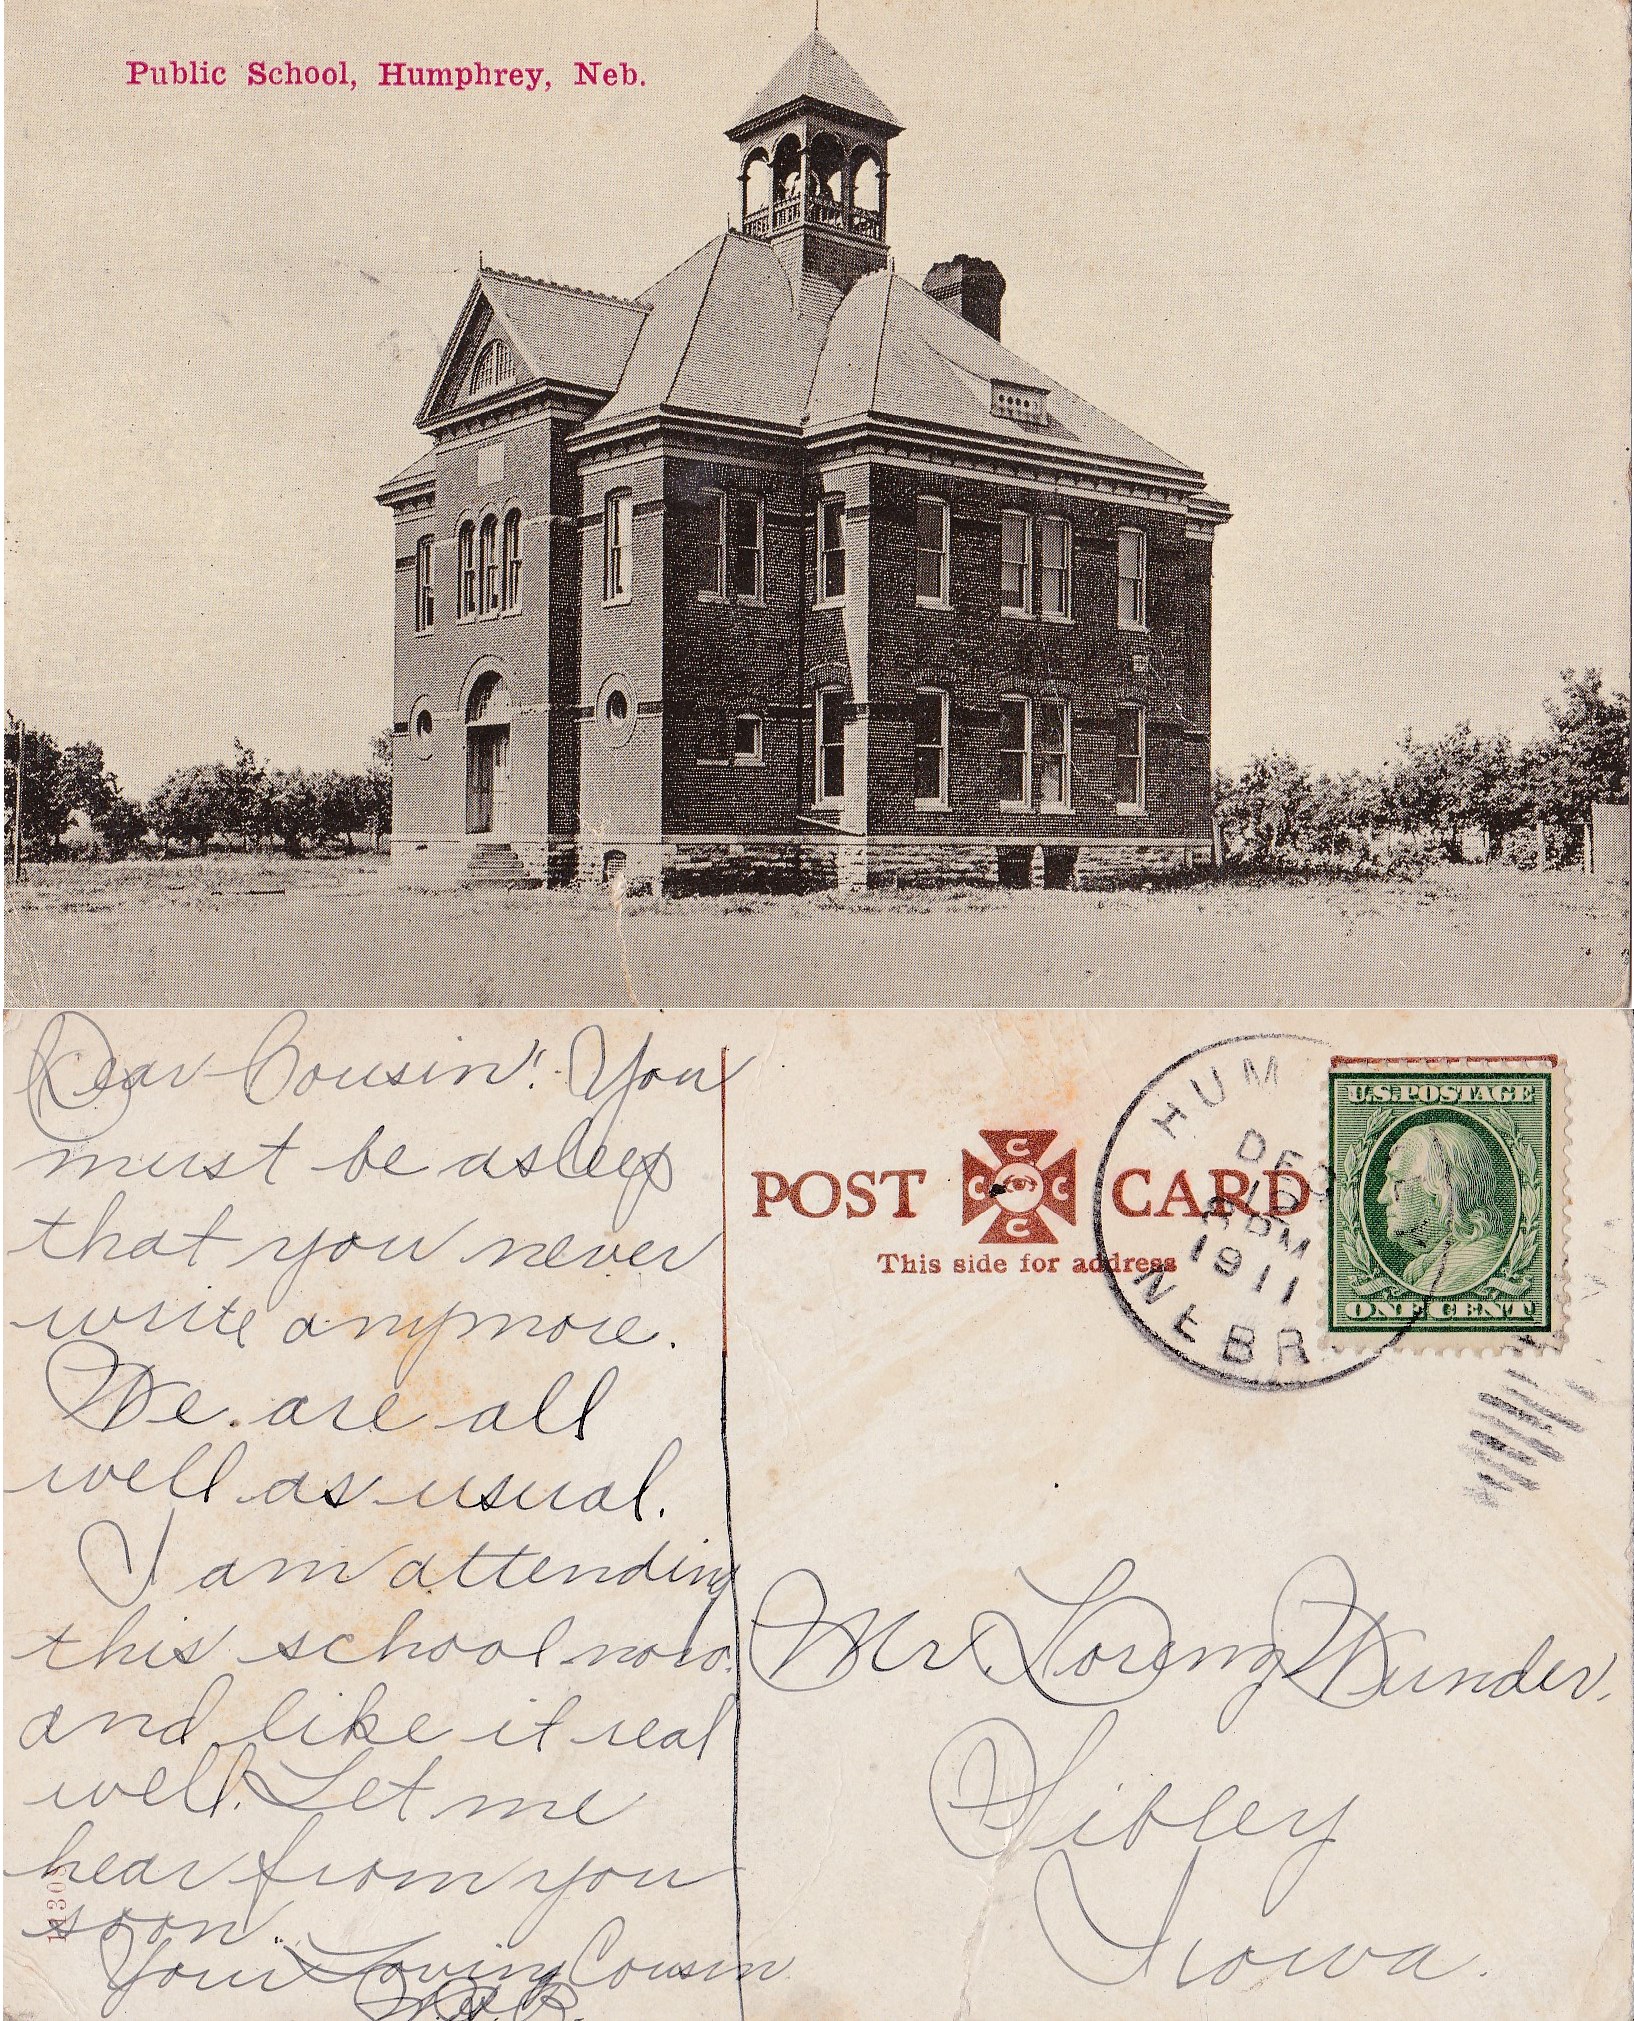 Public School, Humphrey, Neb.
Dear Cousin! You
must be asleep
that you never
write anymore.
We are all
well as usual.
I am attending
this school now.
and like it real
well. Let me
hear from you
soon.
Your Loving Cousin
POST CARD
C C C C
This side for address
HUM
DEC
PM
1911
NEBR
U.S. POSTAGE
ONE CENT
Mr. Loreng Wunder.
Sibley
Iowa.